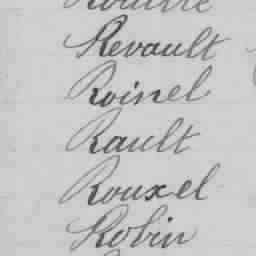 Revault
Roinel
Rault
Rouxel
Robin